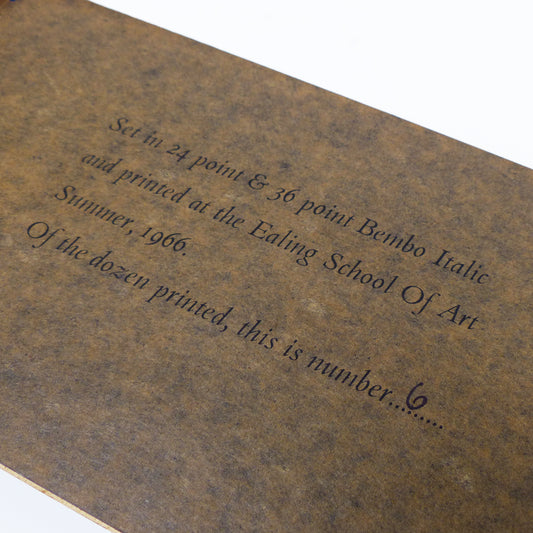 Set in 24 point & 36 point Bembo Italic
and printed at the Ealing School Of Art
Summer, 1966.
Of the dozen printed, this is number...6......